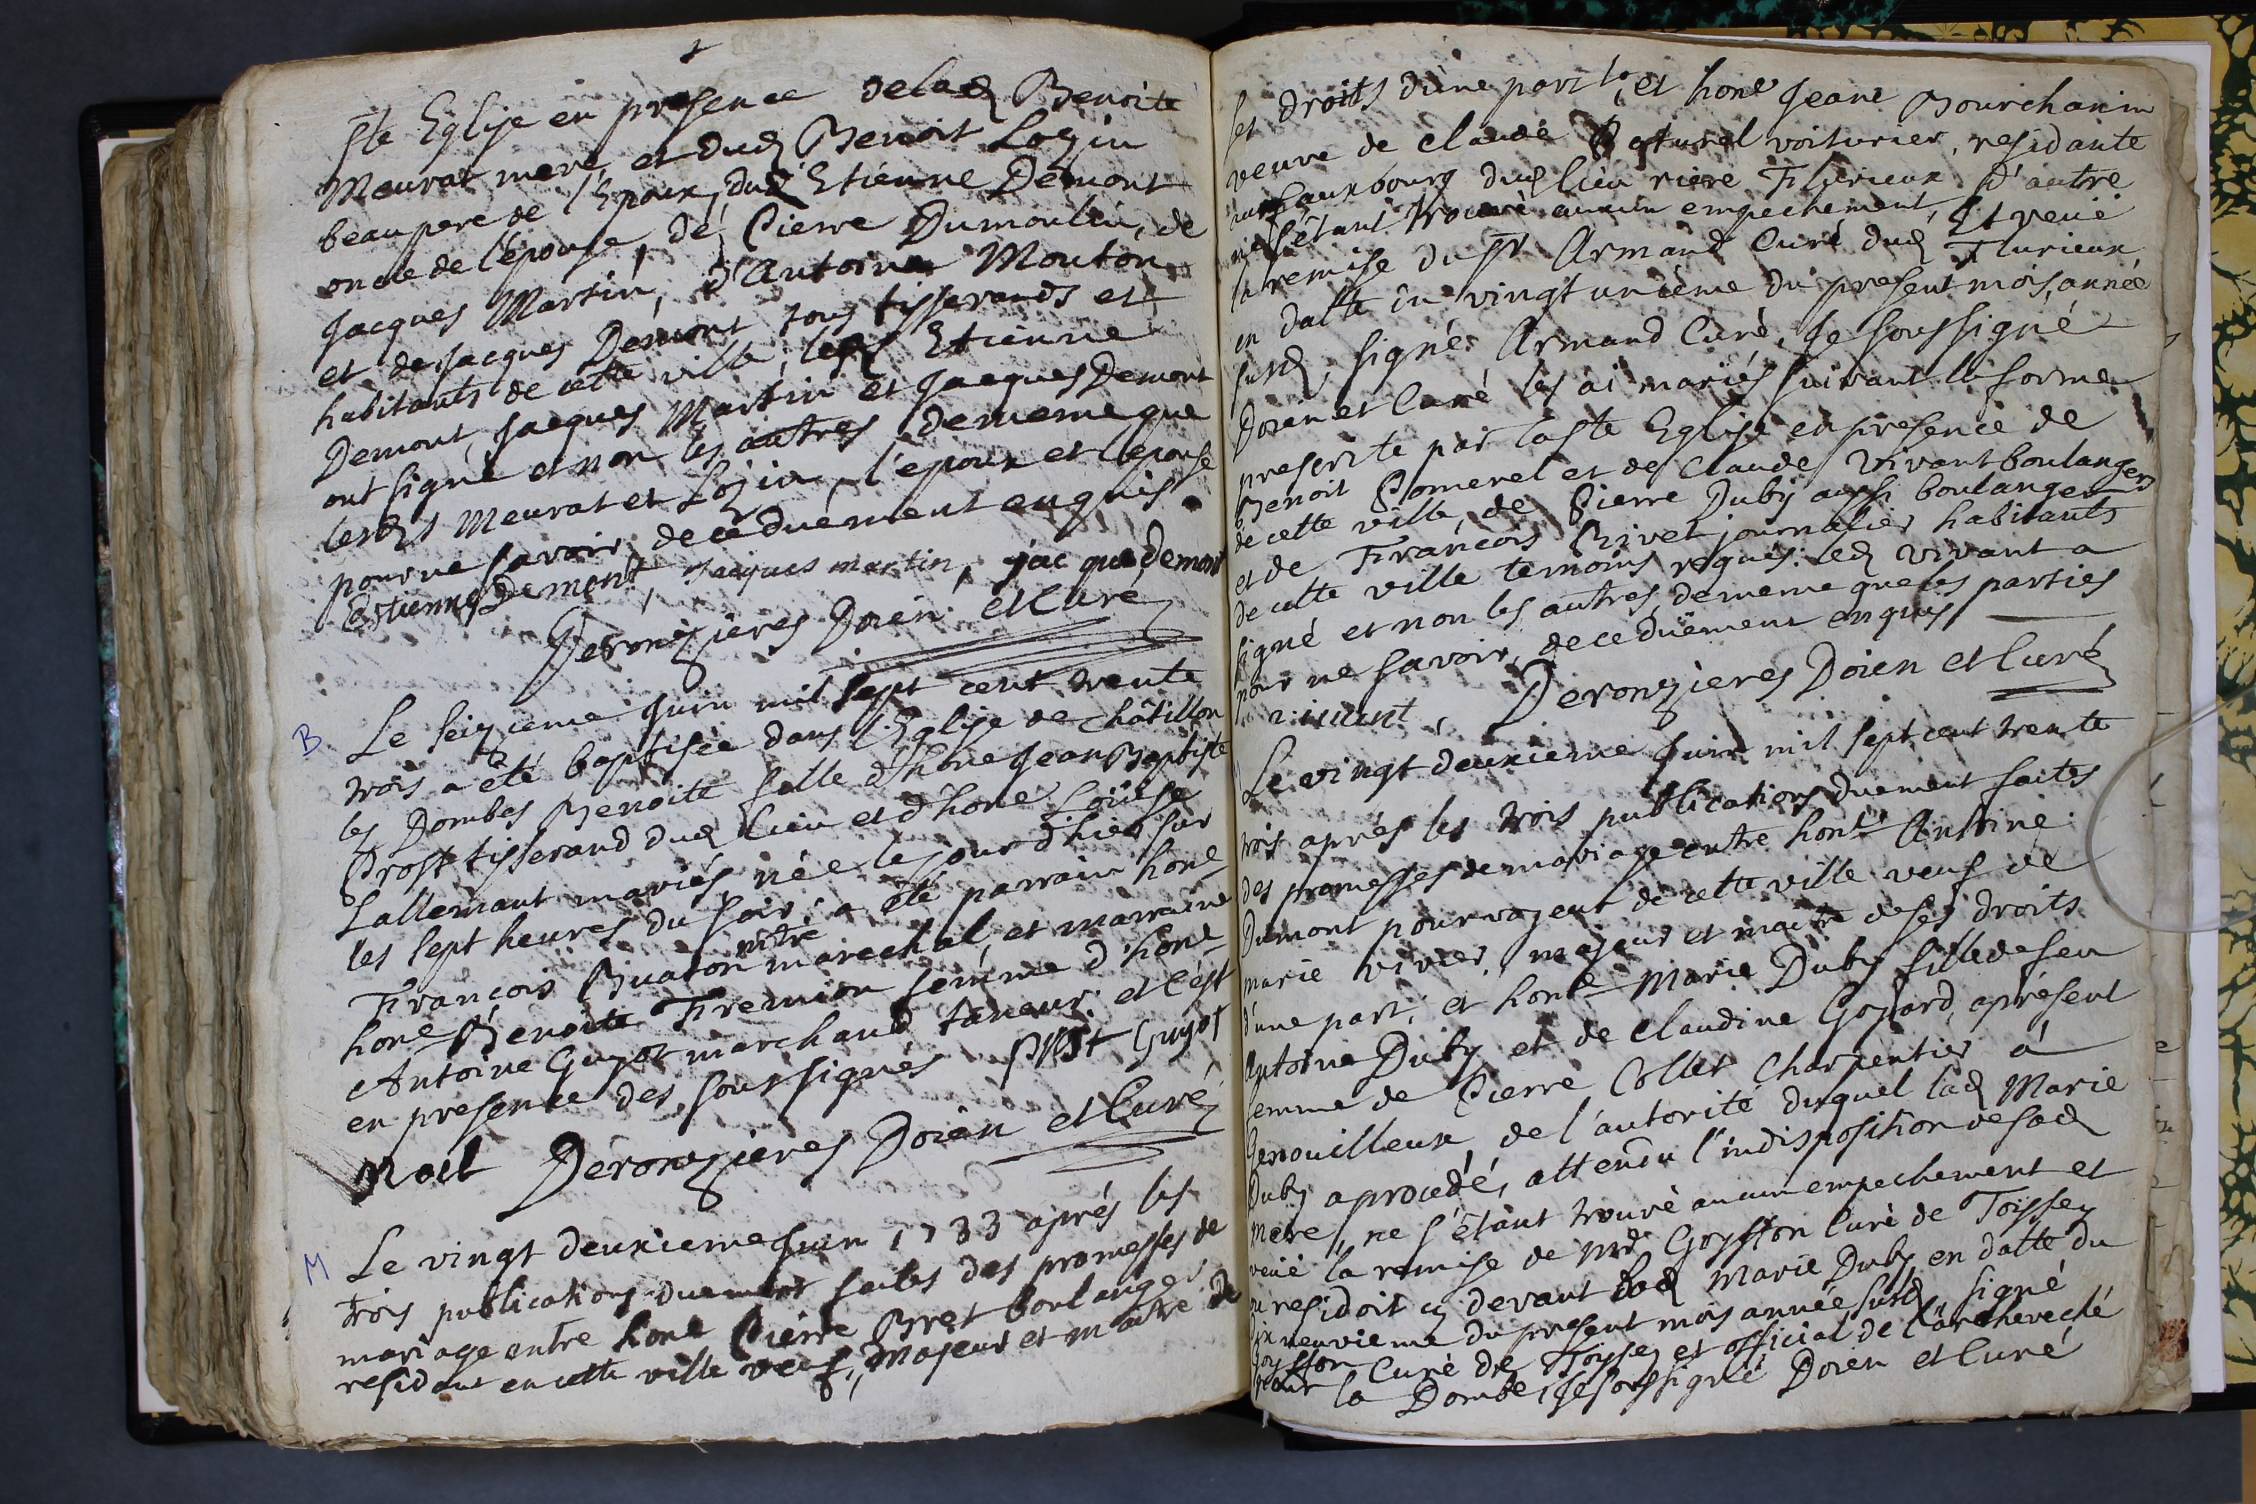 ste Eglise en presence de lad Benoite
Meurat mere, et dud Benoit Login
beau pere de l'Epoux, dud Etienne Demont
oncle de l'epouse, de Pierre Dumoulin, de
Jacques Martin, d'Antoine Mouton
et de Jacques Demont tous tisserands et
habitants de cette ville, lesd Etienne
Demont, Jacques Martin et Jacques Demont
ont signé et non les autres demême que
lesds Meurat et Login, l'epoux et l'epouse
pour ne savoir, de ce duëment enquis.
Estienne Demont, Jacques martin, jacque demont
Deronzieres Doien et Curé
B Le seizieme Juin mil sept cent trente
trois a été baptisée dans l'Eglise de châtillon
les Dombes Benoite fille d'hone Jean Baptiste
Prost tisserand dud lieu et d'hone Loüise
Lallemant mariés, née le jour d'hier sur
les sept heures du soir; a été parrain hone
François Buaton mtre marechal, et marraine
hone Benoite Fremion femme d'hone
Antoine Guyot marchand taneur. et c'est
en presence des soussignés Prost Guyot
Noel Deronzieres Doien et Curé
M Le vingt deuxieme Juin 1733 aprés les
trois publications duement faites des promesses de
mariage entre honé Pierre Bret boulanger
residant en cette ville veuf, majeur et maitre de
ses droits d'une part; et hone Jeane Bourchanin
veuve de claude voiturier, residante
au fauxbourg dud lieu riere Flurieux d'autre
ne s'étant trouvé aucun empechement, Et veuë
la remise du sr Armand Curé dud Flurieux
en datte du vingt unième du present mois, année
susd, signé Armand Curé, Je soussigné
Doien et Curé les ai mariés suivant la forme
prescrite par la ste Eglise en presence de
Benoit Pomerel et de Claude Vivant boulangers
de cette ville, de Pierre Duby aussi boulanger
et de François Rivet journalier habitants
de cette ville temoins requis. led vivant a
signé et non les autres, demême que les parties
pour ne savoir, de ce duëment enquis
vivant, Deronzieres Doien et Curé
Le vingt deuxieme Juin mil sept cent trente
trois aprés les trois publications duement faites
des promesses de mariage entre honé Antoine
Dumont pourvoyeur de cette ville veuf de
marie vivier, majeur et maitre de ses droits
d'une part; et honé Marie Duby fille de feu
Antoine Duby et de claudine Goyard, aprésent
femme de Pierre Collet Charpentier à
Genouilleux, de l'autorité duquel lad Marie
Duby a procedé, attendu l'indisposition de sad
mere, ne s'étant trouvé aucun empechement et
veuë la remise de mr Goyffon Curé de Toissey
ou residoit cy devant lad Marie Duby en datte du
dix neuvieme du present mois année susd, signé
Goyffon Curé de Toissey et official de l'archeveché
pour la Dombe, Je soussigné Doien et Curé